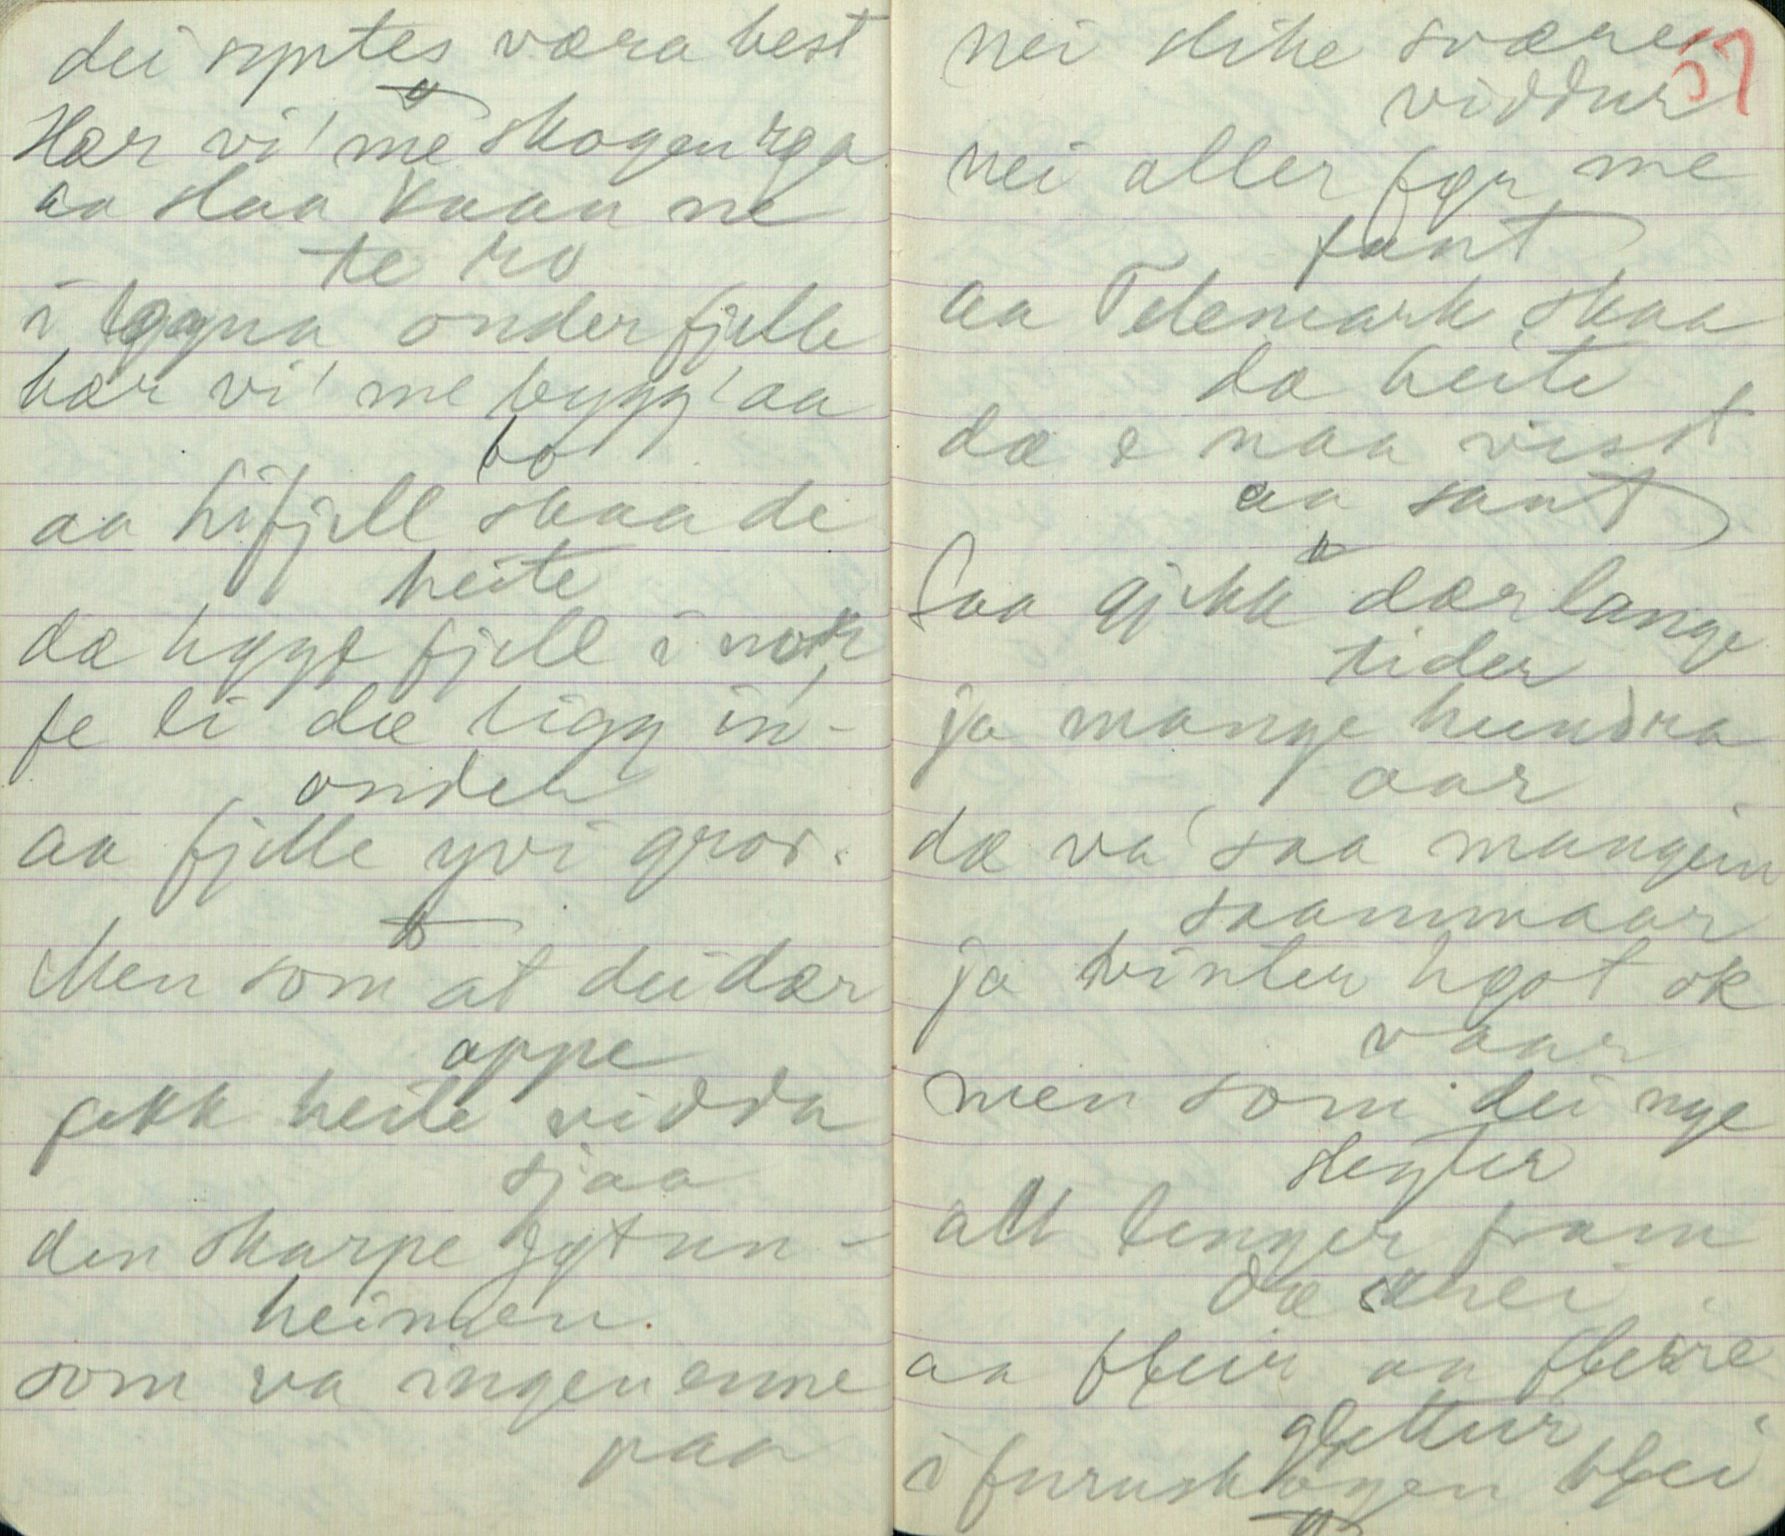 dei syntes væra best
Hær vi' me skogen rya
aa slaa kaan ne
te ro
i løgna onder fjelle
hær vi' me bygg' aa
bo
aa Lifjell skaa de
heite
dæ høgt fjell i nor
fe li dæ ligg in-
onder
aa fjelle yvi gror.
Men som at dei dær
oppe
fekk heile vidda
sjaa
den skarpe Jøtun-
heimen.
som va ingen enne
paa
57
nei slike svære
viddur
nei aller før me
fant
aa Telemark skaa
da heite
dæ e naa visst
aa sant
Saa gjekk dær lange
tider
ja mange hundra
aar
dæ va' saa mangein
saammaar
ja vinter høst ok
vaar
men som dei nye
slegter
alt lenger fram
dæ skrei
aa fleir aa fleire
glettur
i furuskogen blei